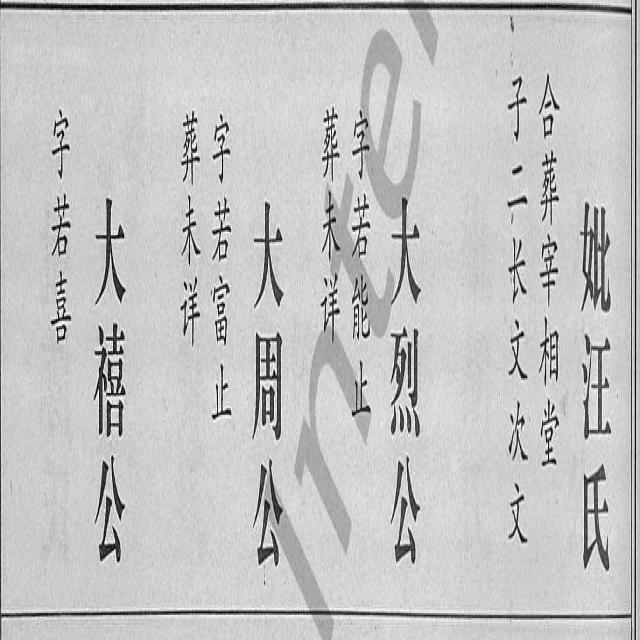 妣汪氏
合葬宰相堂
子二长文次文
大烈公
字若能止
葬未详
大周公
字若富止
葬未详
大禧公
字若喜